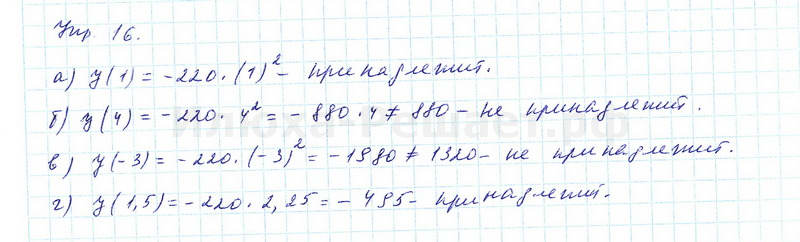 Упр. 16.
а) y(1) = -220 · (1)² - принадлежит.
б) y(4) = -220 · 4² = -880 · 4 ≠ 880 - не принадлежит.
в) y(-3) = -220 · (-3)² = -1980 ≠ 1320 - не принадлежит.
г) y(1,5) = -220 · 2,25 = -495 - принадлежит.
Илюха-Решает.рф